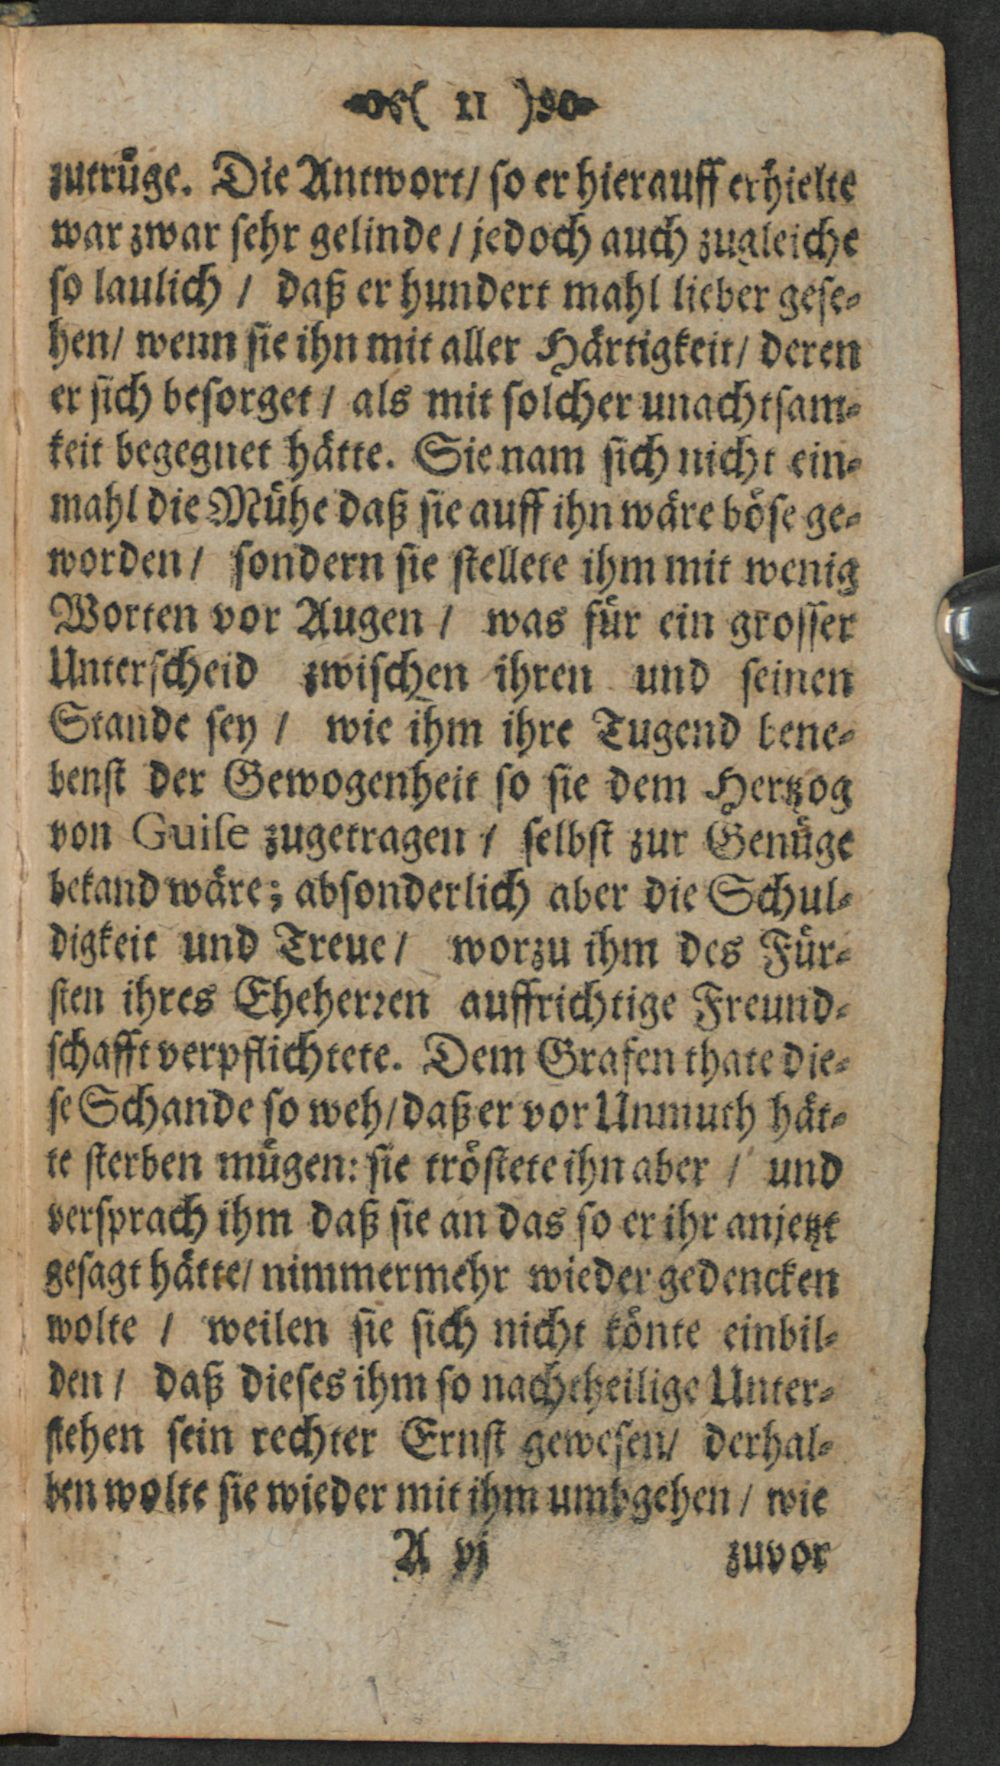 ( 11 )
zutrüge. Die Antwort/ so er hierauff erhielte
war zwar sehr gelinde / jedoch auch zugleiche
so laulich / daß er hundert mahl lieber gese-
hen/ wenn sie ihn mit aller Härtigkeit/ deren
er sich besorget / als mit solcher unachtsam-
keit begegnet hätte. Sie nam sich nicht ein-
mahl die Mühe daß sie auff ihn wäre böse ge-
worden / sondern sie stellete ihm mit wenig
Worten vor Augen / was für ein grosser
Unterscheid zwischen ihren und seinen
Stande sey / wie ihm ihre Tugend bene-
benst der Gewogenheit so sie dem Hertzog
von Guise zugetragen / selbst zur Genüge
bekand wäre; absonderlich aber die Schul-
digkeit und Treue / worzu ihm des Für-
sten ihres Eheherren auffrichtige Freund-
schafft verpflichtete. Dem Grafen thate die-
se Schande so weh/ daß er vor Unmuth hät-
te sterben mügen: sie tröstete ihn aber / und
versprach ihm daß sie an das so er ihr anjetzt
gesagt hätte/ nimmermehr wieder gedencken
wolte / weilen sie sich nicht könte einbil-
den / daß dieses ihm so nachtheilige Unter-
stehen sein rechter Ernst gewesen/ derhal-
ben wolte sie wieder mit ihm umbgehen / wie
A vj zuvor